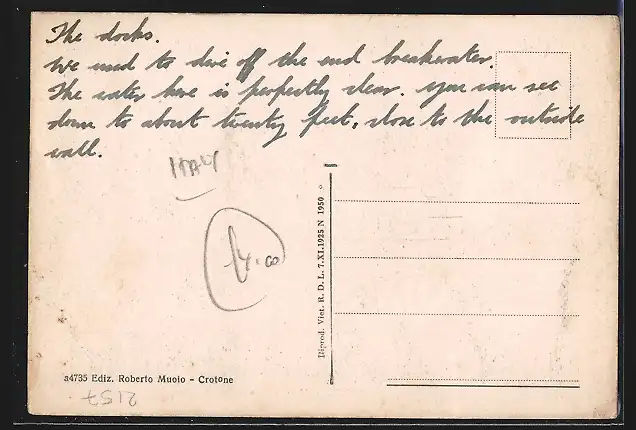 The docks.
We used to dive off the end breakwater.
The water here is perfectly clear. you can see
down to about twenty feet, close to the outside
wall.
ITALY
4.00
Riprod. Viet. R. D. L. 7.XI.1925 N 1950
a4735 Ediz. Roberto Muoio - Crotone
2157